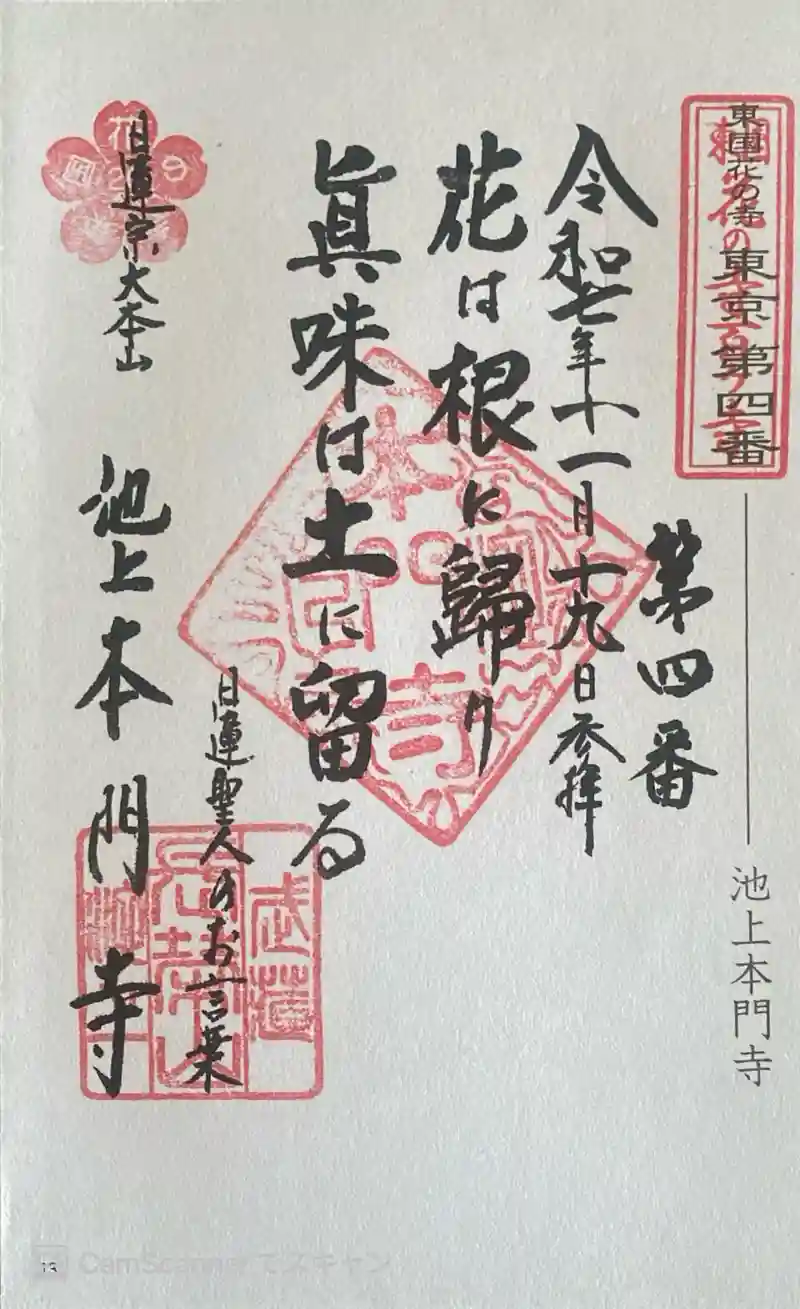 東国花の寺 東京第四番
池上本門寺
第四番
令和七年十一月十九日参拝
花は根に歸り
眞味は土に留る
日蓮聖人のお言葉
日蓮宗大本山
池上本門寺
CamScannerでスキャン